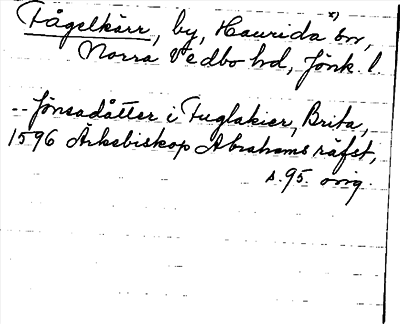 Fågelkärr, by, Haurida x) sn,
Norra Vedbo hd, Jönk. l.
.. Jönsadåtter i Fuglakier, Brita,
1596 Ärkebiskop Abrahams räfst,
s. 95 orig.